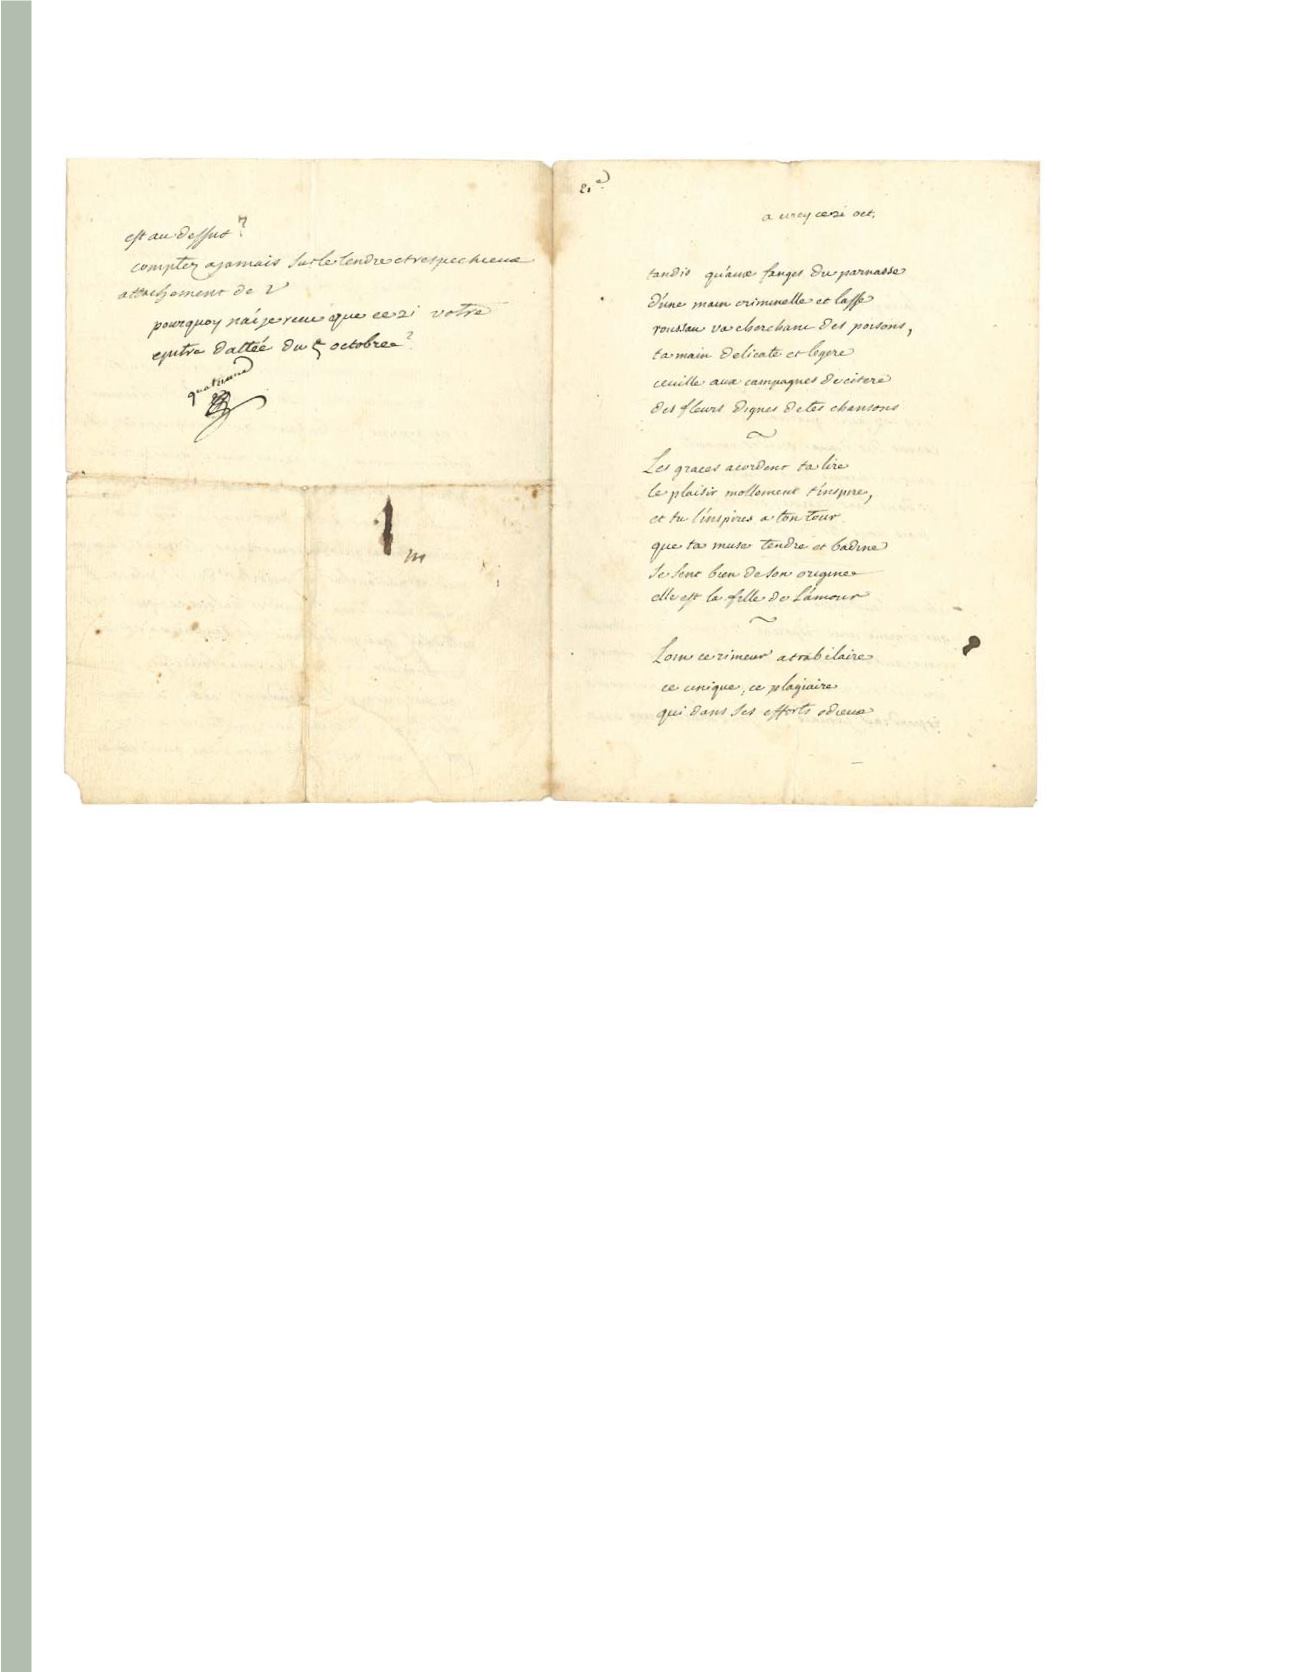 est au dessus?
comptez a jamais sur le tendre et respectueux
attachement de V
pourquoy n'ai je receu que ce 21 votre
epitre dattéé du 5 octobre?
a cirey ce 21 oct.
tandis qu'aux fanges du parnasse
d'une main criminelle et lasse
roussau va cherchant des poisons,
ta main delicate et legere
ceuille aux campagnes de citere
des fleurs dignes de tes chansons
Les graces acordent ta lire
le plaisir mollement t'inspire,
et tu l'inspires a ton tour
que ta muse tendre et badine
se sent bien de son origine
elle est la fille de l'amour
Loin ce rimeur atrabilaire
ce cinique, ce plagiaire
qui dans ses efforts odieux